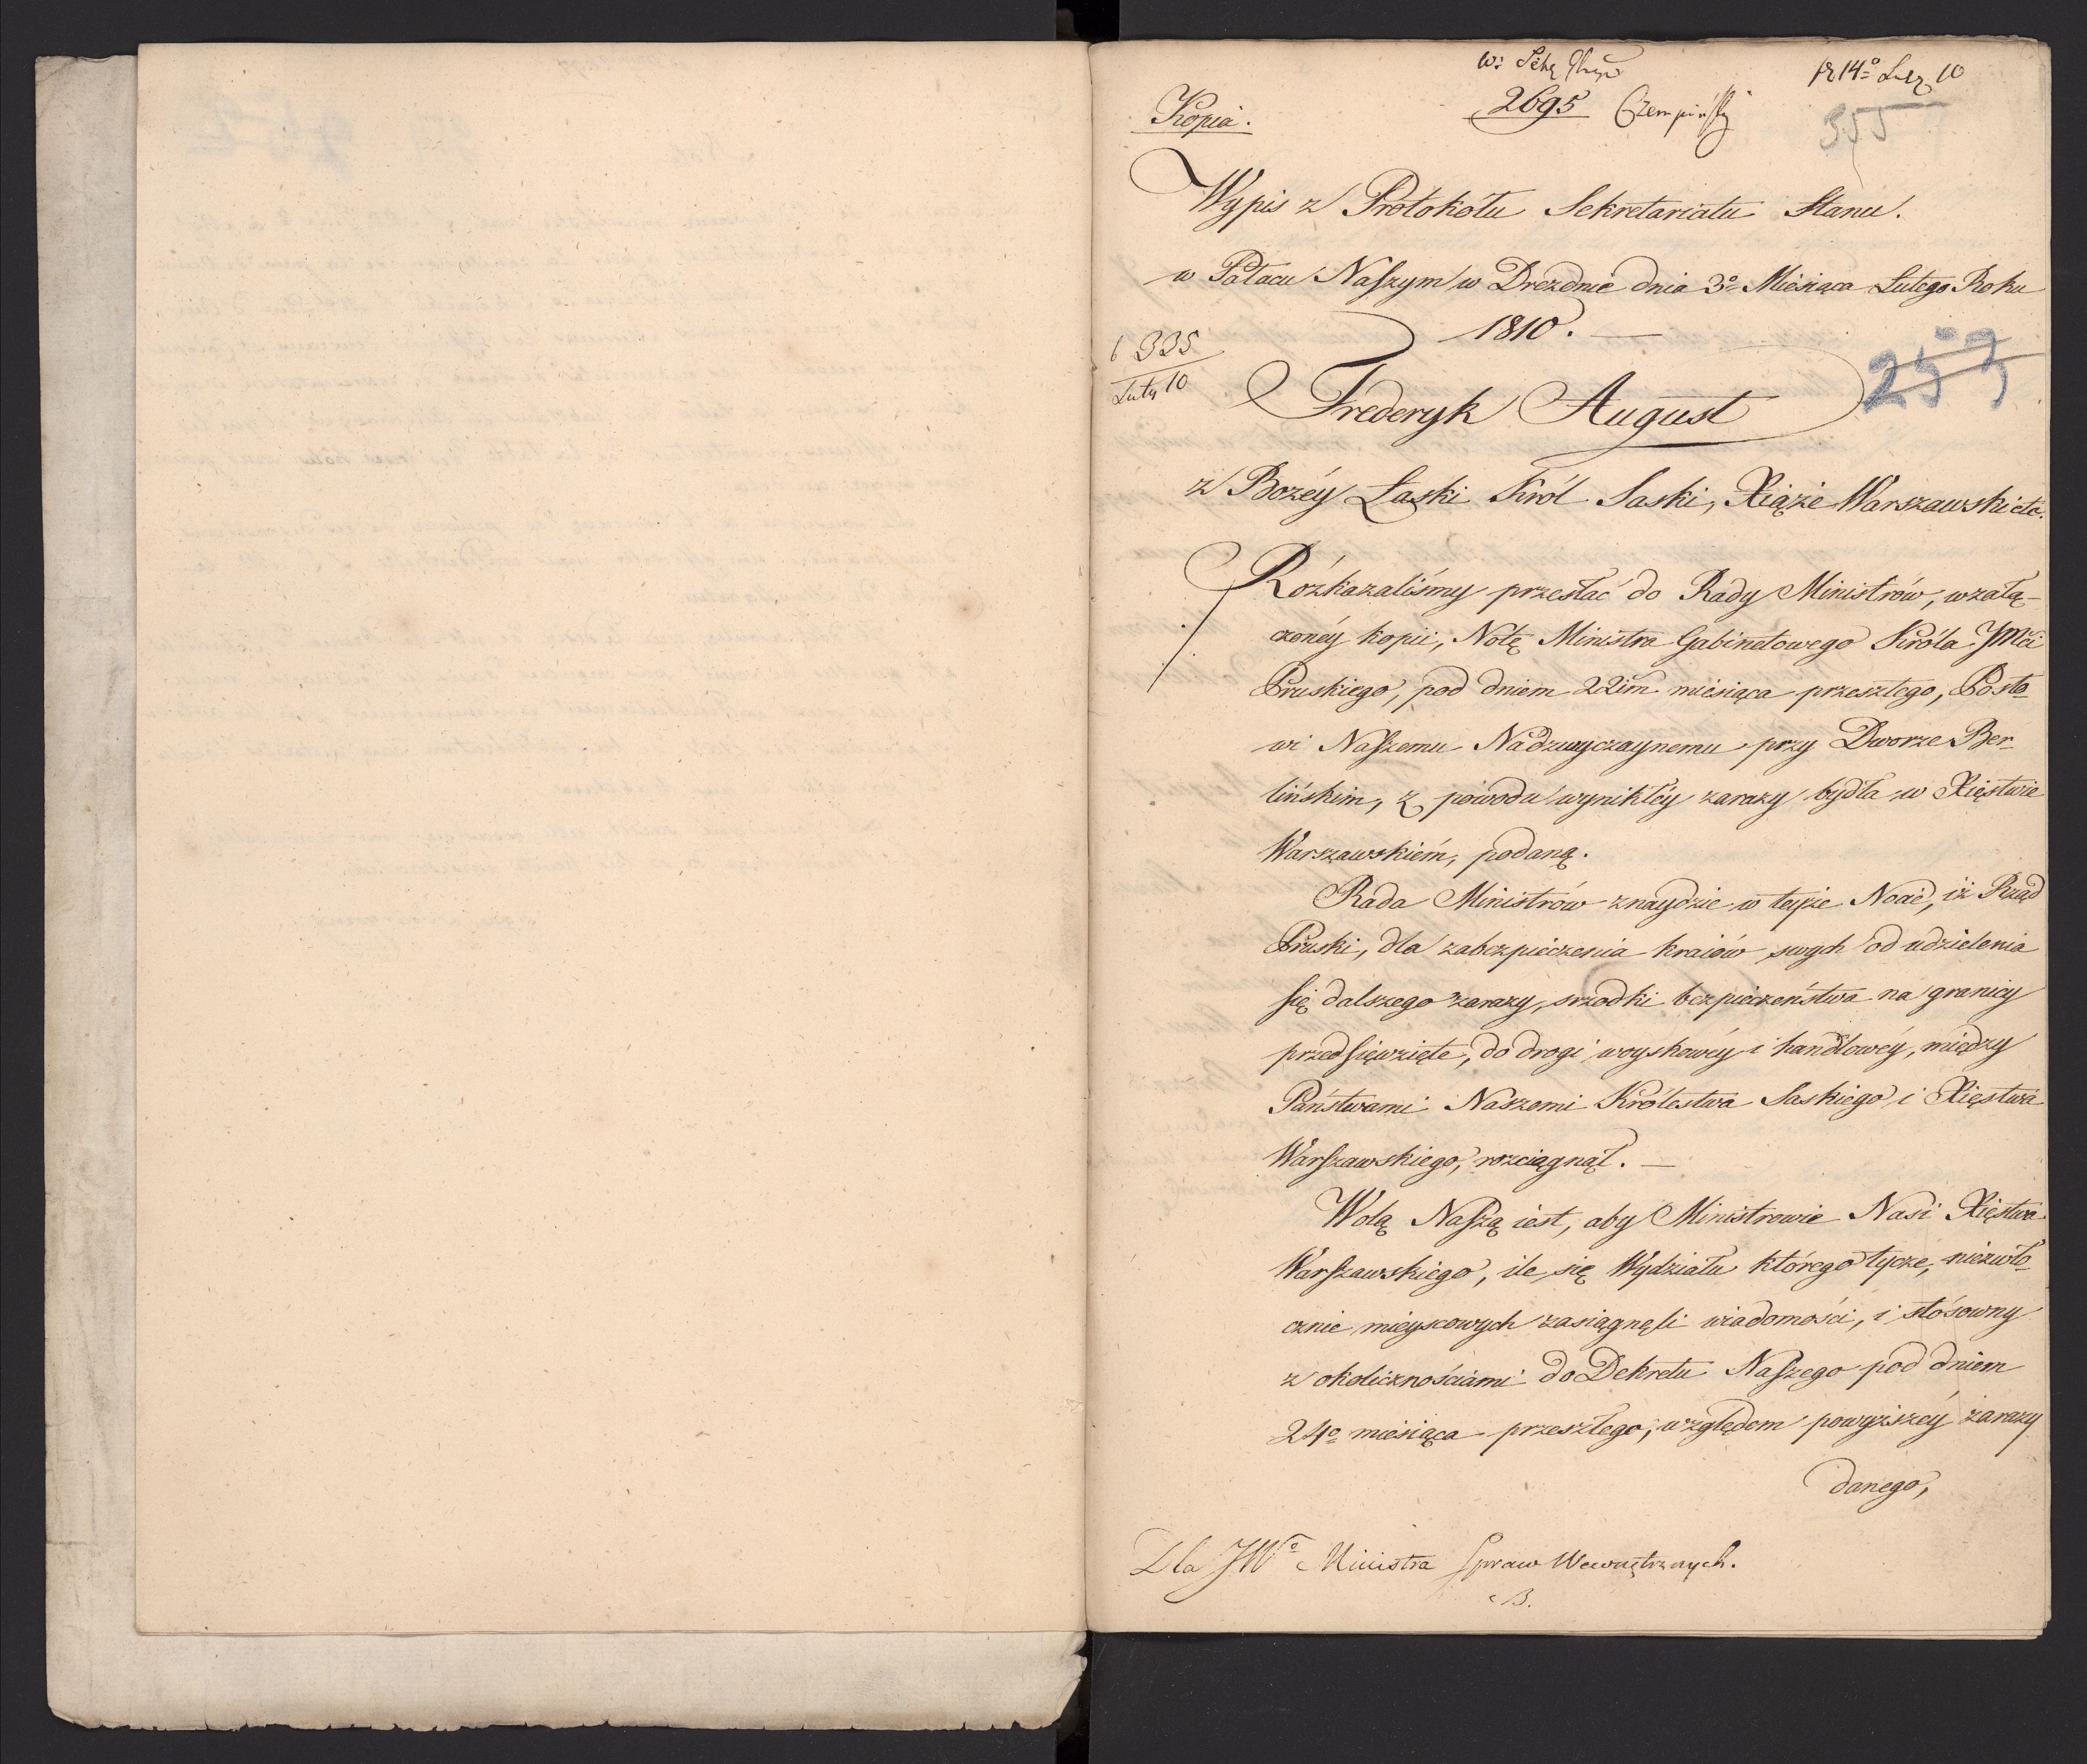 Kopia.
2695 Czempiński
pr 14º Lutg 10
355
Wypis z Protokołu Sekretariatu Stanu.
w Pałacu Naszym w Dreznie dnia 3º Miesiąca Lutego Roku
1810. —
335
Luty 10
259
Frederyk August
z Bożéy Łaski Król Saski, Xiąże Warszawski etc.
Rozkazaliśmy przesłać do Rady Ministrów, w załą-
czonéy kopii, Notę Ministra Gabinetowego Króla JMci
Pruskiego, pod dniem 22im miesiąca przeszłego, Posło-
wi Naszemu Nadzwyczaynemu przy Dworze Ber-
lińskim, z powodu wynikłéy zarazy bydła w Xięstwie
Warszawskiém, podaną.
Rada Ministrów znaydzie w teyże Nocie, iż Rząd
Pruski, dla zabezpieczenia kraiów swych od udzielenia
się dalszego zarazy, srzodki bezpieczeństwa na granicy
przedsięwzięte, do drogi woyskowéy i handlowéy, między
Państwami Naszemi Królestwa Saskiego i Xięstwa
Warszawskiego, rozciągnął. —
Wolą Naszą iest, aby Ministrowie Nasi Xięstwa
Warszawskiego, ile się Wydziału którego tycze, niezwło-
cznie mieyscowych zasiągnęli wiadomości, i stósowny
z okolicznościami do Dekretu Naszego pod dniem
24º miesiąca przeszłego, względem powyższéy zarazy
danego,
Dla JWº Ministra Spraw Wewnętrznych.
B.